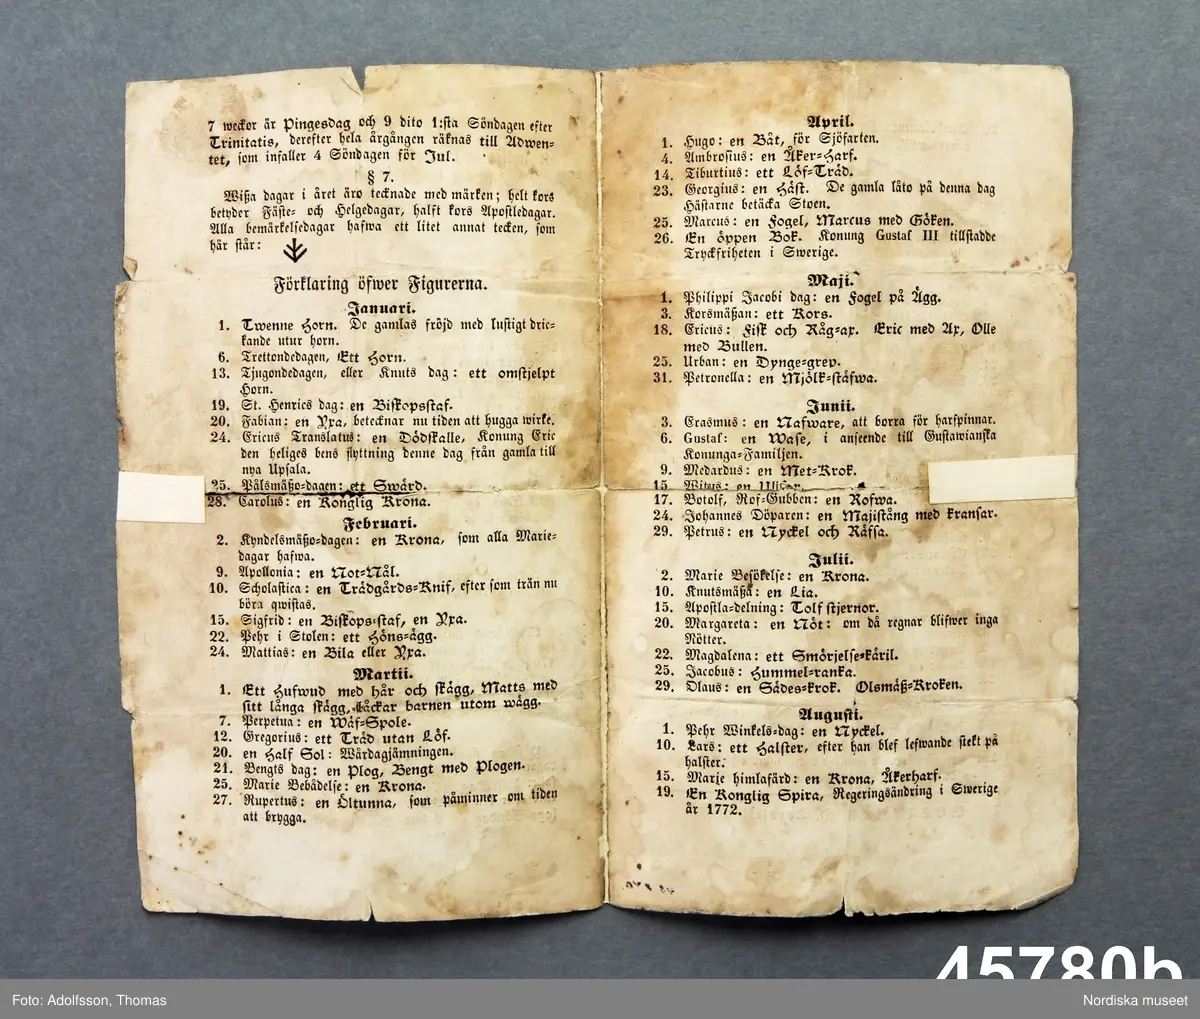 7 weckor är Pingesdag och 9 dito 1:sta Söndagen efter
Trinitatis, derefter hela årgången räknas till Adwen-
tet, som infaller 4 Söndagen för Jul.
§ 7.
Wißa dagar i året äro tecknade med märken; helt kors
betyder Fäste- och Helgedagar, halft kors Apostledagar.
Alla bemärkelsedagar hafwa ett litet annat tecken, som
här står:
Förklaring öfwer Figurerna.
Januari.
1. Twenne Horn. De gamlas fröjd med lustigt dric-
kande utur horn.
6. Trettondedagen, Ett Horn.
13. Tjugondedagen, eller Knuts dag: ett omstjelpt
Horn.
19. St. Henrics dag: en Biskopsstaf.
20. Fabian: en Yxa, betecknar nu tiden att hugga wirke.
24. Ericus Translatus: en Dödskalle, Konung Eric
den heliges bens flyttning denne dag från gamla till
nya Upsala.
25. Pålsmäßo-dagen: ett Swärd.
28. Carolus: en Konglig Krona.
Februari.
2. Kyndelsmäßo-dagen: en Krona, som alla Marie-
dagar hafwa.
9. Apollonia: en Not-Nål.
10. Scholastica: en Trädgårds-Knif, efter som trän nu
böra qwistas.
15. Sigfrid: en Biskops-staf, en Yxa.
22. Pehr i Stolen: ett Höns-ägg.
24. Mattias: en Bila eller Yxa.
Martii.
1. Ett Hufwud med hår och skägg, Matts med
sitt långa skägg, låckar barnen utom wägg.
7. Perpetua: en Wäf-Spole.
12. Gregorius: ett Träd utan Löf.
20. en Half Sol: Wårdagjämningen.
21. Bengts dag: en Plog, Bengt med Plogen.
25. Marie Bebådelse: en Krona.
27. Rupertus: en Öltunna, som påminner om tiden
att brygga.
April.
1. Hugo: en Båt, för Sjöfarten.
4. Ambrosius: en Åker-Harf.
14. Tiburtius: ett Löf-Träd.
23. Georgius: en Häst. De gamla låto på denna dag
Hästarne betäcka Stoen.
25. Marcus: en Fogel, Marcus med Göken.
26. En öppen Bok. Konung Gustaf III tillstadde
Tryckfriheten i Swerige.
Maji.
1. Philippi Jacobi dag: en Fogel på Ägg.
3. Korsmäßan: ett Kors.
18. Ericus: Fisk och Råg-ax. Eric med Ax, Olle
med Bullen.
25. Urban: en Dynge-grep.
31. Petronella: en Mjölk-stäfwa.
Junii.
3. Erasmus: en Nafware, att borra för harfpinnar.
6. Gustaf: en Wase, i anseende till Gustawianska
Konunga-Familjen.
9. Medardus: en Met-Krok.
15. Witus: en
17. Botolf, Rof-Gubben: en Rofwa.
24. Johannes Döparen: en Majistång med kransar.
29. Petrus: en Nyckel och Räfsa.
Julii.
2. Marie Besökelse: en Krona.
10. Knutsmäßa: en Lia.
15. Apostla-delning: Tolf stjernor.
20. Margareta: en Nöt: om då regnar blifwer inga
Nötter.
22. Magdalena: ett Smörjelse-käril.
25. Jacobus: Hummel-ranka.
29. Olaus: en Sädes-krok. Olsmäß-Kroken.
Augusti.
1. Pehr Winkels-dag: en Nyckel.
10. Lars: ett Halster, efter han blef lefwande stekt på
halster.
15. Marje himlafärd: en Krona, Åkerharf.
19. En Konglig Spira, Regeringsändring i Swerige
år 1772.
45780b
Foto: Adolfsson, Thomas
Nordiska museet